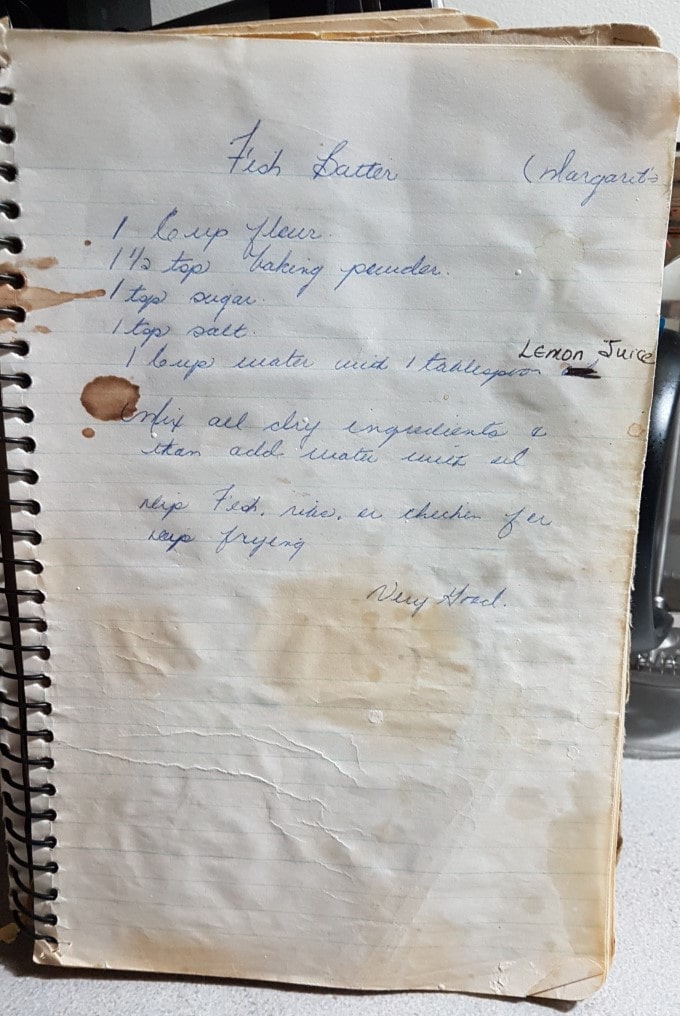 Fish Batter (Margaret's
1 Cup flour.
1 1/2 tsp baking powder.
1 tsp sugar.
1 tsp salt.
1 Cup water and 1 tablespoon Lemon Juice
Mix all dry ingredients &
than add water with oil
Dip Fish, ribs, or chicken for
deep frying
Very Good.